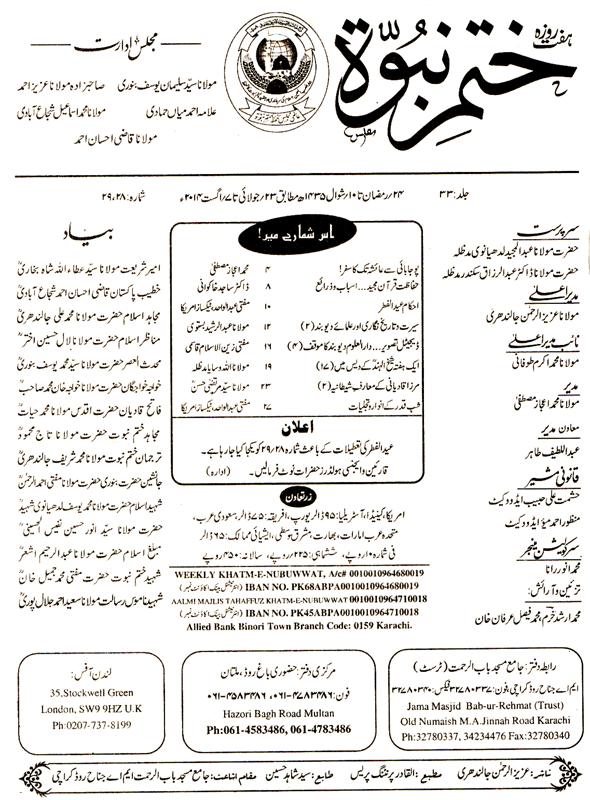 ہفت روزہ
ختم نبوۃ
مجلس ادارت
مولانا سید سلیمان یوسف بنوری صاحبزادہ مولانا عزیز احمد
علامہ احمد میاں حمادی مولانا محمد اسماعیل شجاع آبادی
مولانا قاضی احسان احمد
جلد: ۳۳ ۲۴/رمضان تا ۱۰/شوال ۱۴۳۵ھ مطابق ۲۳/جولائی تا ۷/اگست ۲۰۱۴ء شمارہ: ۲۸، ۲۹
سرپرست
حضرت مولانا عبدالمجید لدھیانوی مدظلہ
حضرت مولانا ڈاکٹر عبدالرزاق سکندر مدظلہ
مدیر اعلیٰ
مولانا عزیز الرحمٰن جالندھری
نائب مدیر اعلیٰ
مولانا محمد اکرم طوفانی
مدیر
مولانا محمد اعجاز مصطفیٰ
معاون مدیر
عبداللطیف طاہر
قانونی مشیر
حشمت علی حبیب ایڈووکیٹ
منظور احمد میؤ ایڈووکیٹ
سرکولیشن منیجر
محمد انور رانا
تزئین و آرائش:
محمد ارشد خرم، محمد فیصل عرفان خان
اس شمارے میں!
پوجا بائی سے عائشہ تک کا سفر! ۴ محمد اعجاز مصطفیٰ
حفاظت قرآن مجید... اسباب و ذرائع ۸ ڈاکٹر ساجد خاکوانی
احکام عید الفطر ۱۰ مفتی عبدالواحد، ٹیکساز امریکا
سیرت و تاریخ نگاری اور علمائے دیوبند (۲) ۱۲ مولانا عبدالرشید بستوی
ڈیجیٹل تصویر... دارالعلوم دیوبند کا موقف (۴) ۱۶ مفتی زین الاسلام قاسمی
ایک ہفتہ شیخ الہند کے دیس میں (۱۷) ۱۹ مولانا اللہ وسایا مدظلہ
مرزا قادیانی کے معارف شیطانیہ (۲) ۲۳ مولانا سید مرتضیٰ حسن
شب قدر کے انوار و تجلیات ۲۷ مفتی عبدالواحد، ٹیکساز امریکا
اعلان
عید الفطر کی تعطیلات کے باعث شمارہ ۲۸/۲۹ کو یکجا کیا جا رہا ہے۔
قارئین و ایجنسی ہولڈرز حضرات نوٹ فرمالیں۔ (ادارہ)
زر تعاون
امریکا، کینیڈا، آسٹریلیا: ۹۵ ڈالر یورپ، افریقہ: ۷۵ ڈالر، سعودی عرب،
متحدہ عرب امارات، بھارت، مشرق وسطیٰ، ایشیائی ممالک: ۶۵ ڈالر
فی شمارہ ۱۰ روپے، ششماہی: ۲۲۵ روپے، سالانہ: ۴۵۰ روپے
WEEKLY KHATM-E-NUBUWWAT, A/c# 0010010964680019
IBAN NO. PK68ABPA0010010964680019 (انٹرنیشنل بینک اکاؤنٹ نمبر)
AALMI MAJLIS TAHAFFUZ KHATM-E-NUBUWWAT 0010010964710018
IBAN NO. PK45ABPA0010010964710018 (انٹرنیشنل بینک اکاؤنٹ نمبر)
Allied Bank Binori Town Branch Code: 0159 Karachi.
بیاد
امیر شریعت مولانا سید عطاء اللہ شاہ بخاریؒ
خطیب پاکستان قاضی احسان احمد شجاع آبادیؒ
مجاہد اسلام حضرت مولانا محمد علی جالندھریؒ
مناظر اسلام حضرت مولانا لال حسین اخترؒ
محدث العصر حضرت مولانا سید محمد یوسف بنوریؒ
خواجہ خواجگان حضرت مولانا خواجہ خان محمد صاحبؒ
فاتح قادیان حضرت اقدس مولانا محمد حیاتؒ
مجاہد ختم نبوت حضرت مولانا تاج محمودؒ
ترجمان ختم نبوت حضرت مولانا محمد شریف جالندھریؒ
جانشین حضرت بنوری حضرت مولانا مفتی احمد الرحمٰنؒ
شہید اسلام حضرت مولانا محمد یوسف لدھیانوی شہیدؒ
حضرت مولانا سید انور حسین نفیس الحسینیؒ
مبلغ اسلام حضرت مولانا عبدالرحیم اشعرؒ
شہید ختم نبوت حضرت مفتی محمد جمیل خانؒ
شہید ناموس رسالت مولانا سعید احمد جلال پوریؒ
رابطہ دفتر: جامع مسجد باب الرحمت (ٹرسٹ)
ایم اے جناح روڈ کراچی، فون: ۳۲۷۸۰۳۳۷ فیکس: ۳۲۷۸۰۳۴۰
Jama Masjid Bab-ur-Rehmat (Trust)
Old Numaish M.A.Jinnah Road Karachi
Ph:32780337, 34234476 Fax:32780340
مرکزی دفتر: حضوری باغ روڈ، ملتان
فون: ۰۶۱-۴۷۸۳۴۸۶، ۰۶۱-۴۵۸۳۴۸۶
Hazori Bagh Road Multan
Ph:061-4583486, 061-4783486
لندن آفس:
35,Stockwell Green
London, SW9 9HZ U.K
Ph:0207-737-8199
عزیز الرحمٰن جالندھری مطبع: القادر پرنٹنگ پریس طابع: سید شاہد حسین مقام اشاعت: جامع مسجد باب الرحمت ایم اے جناح روڈ کراچی